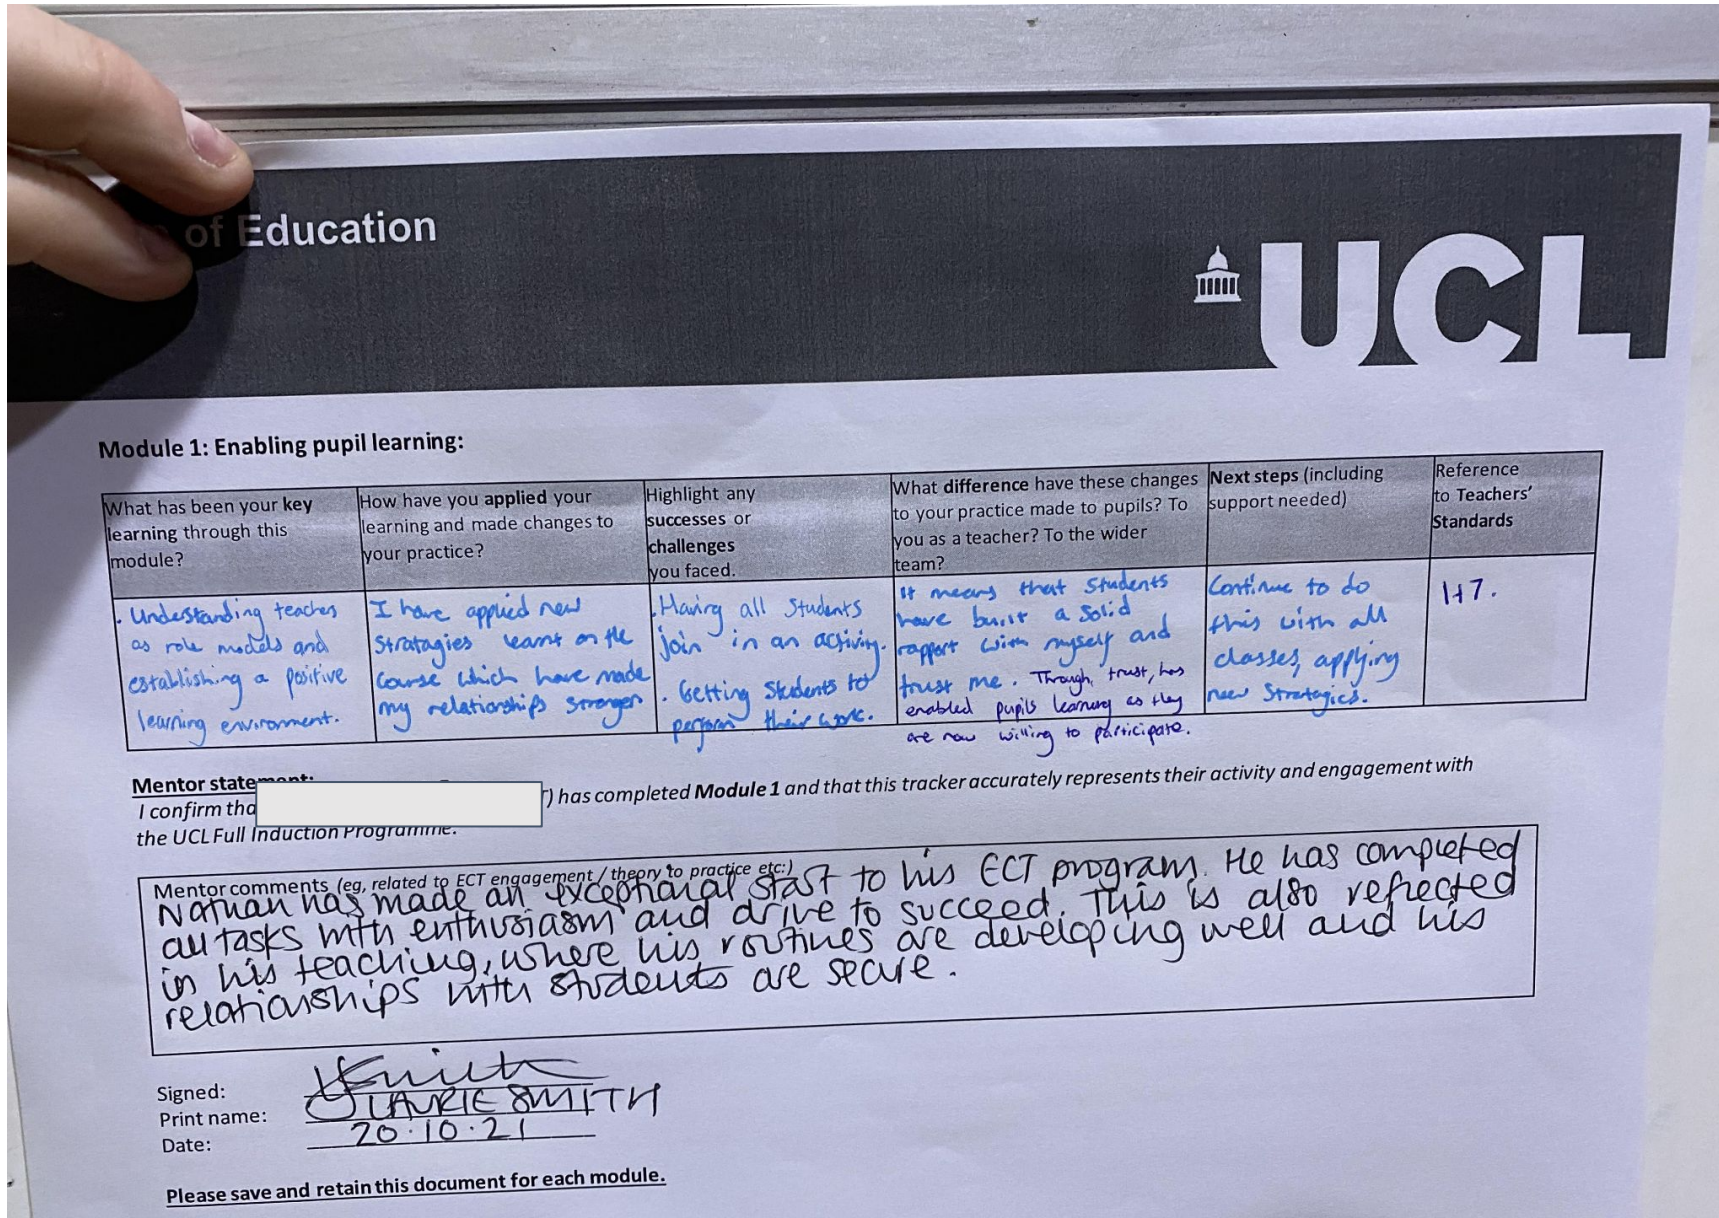 of Education
UCL
Module 1: Enabling pupil learning:
What has been your key
learning through this
module?
How have you applied your
learning and made changes to
your practice?
Highlight any
successes or
challenges
you faced.
What difference have these changes
to your practice made to pupils? To
you as a teacher? To the wider
team?
Next steps (including
support needed)
Reference
to Teachers'
Standards
. Understanding teaches
as role models and
establishing a positive
learning environment.
I have applied new
Stratagies learnt on the
course which have made
my relationships stronger
. Having all Students
join in an activity.
. Getting Students to
perform their work.
It means that Students
have built a Solid
rapport with myself and
trust me. Through, trust, has
enabled pupils learning as they
are now willing to participate.
Continue to do
this with all
classes, applying
new Stratagies.
1+7.
Mentor statement:
I confirm tha ) has completed Module 1 and that this tracker accurately represents their activity and engagement with
the UCL Full Induction Programme.
Mentor comments (eg, related to ECT engagement / theory to practice etc:)
Nathan has made an exceptional start to his ECT program. He has completed
all tasks with enthusiasm and drive to succeed. This is also reflected
in his teaching, where his routines are developing well and his
relationships with students are secure.
Signed:
Print name: LAURIE SMITH
Date: 20.10.21
Please save and retain this document for each module.